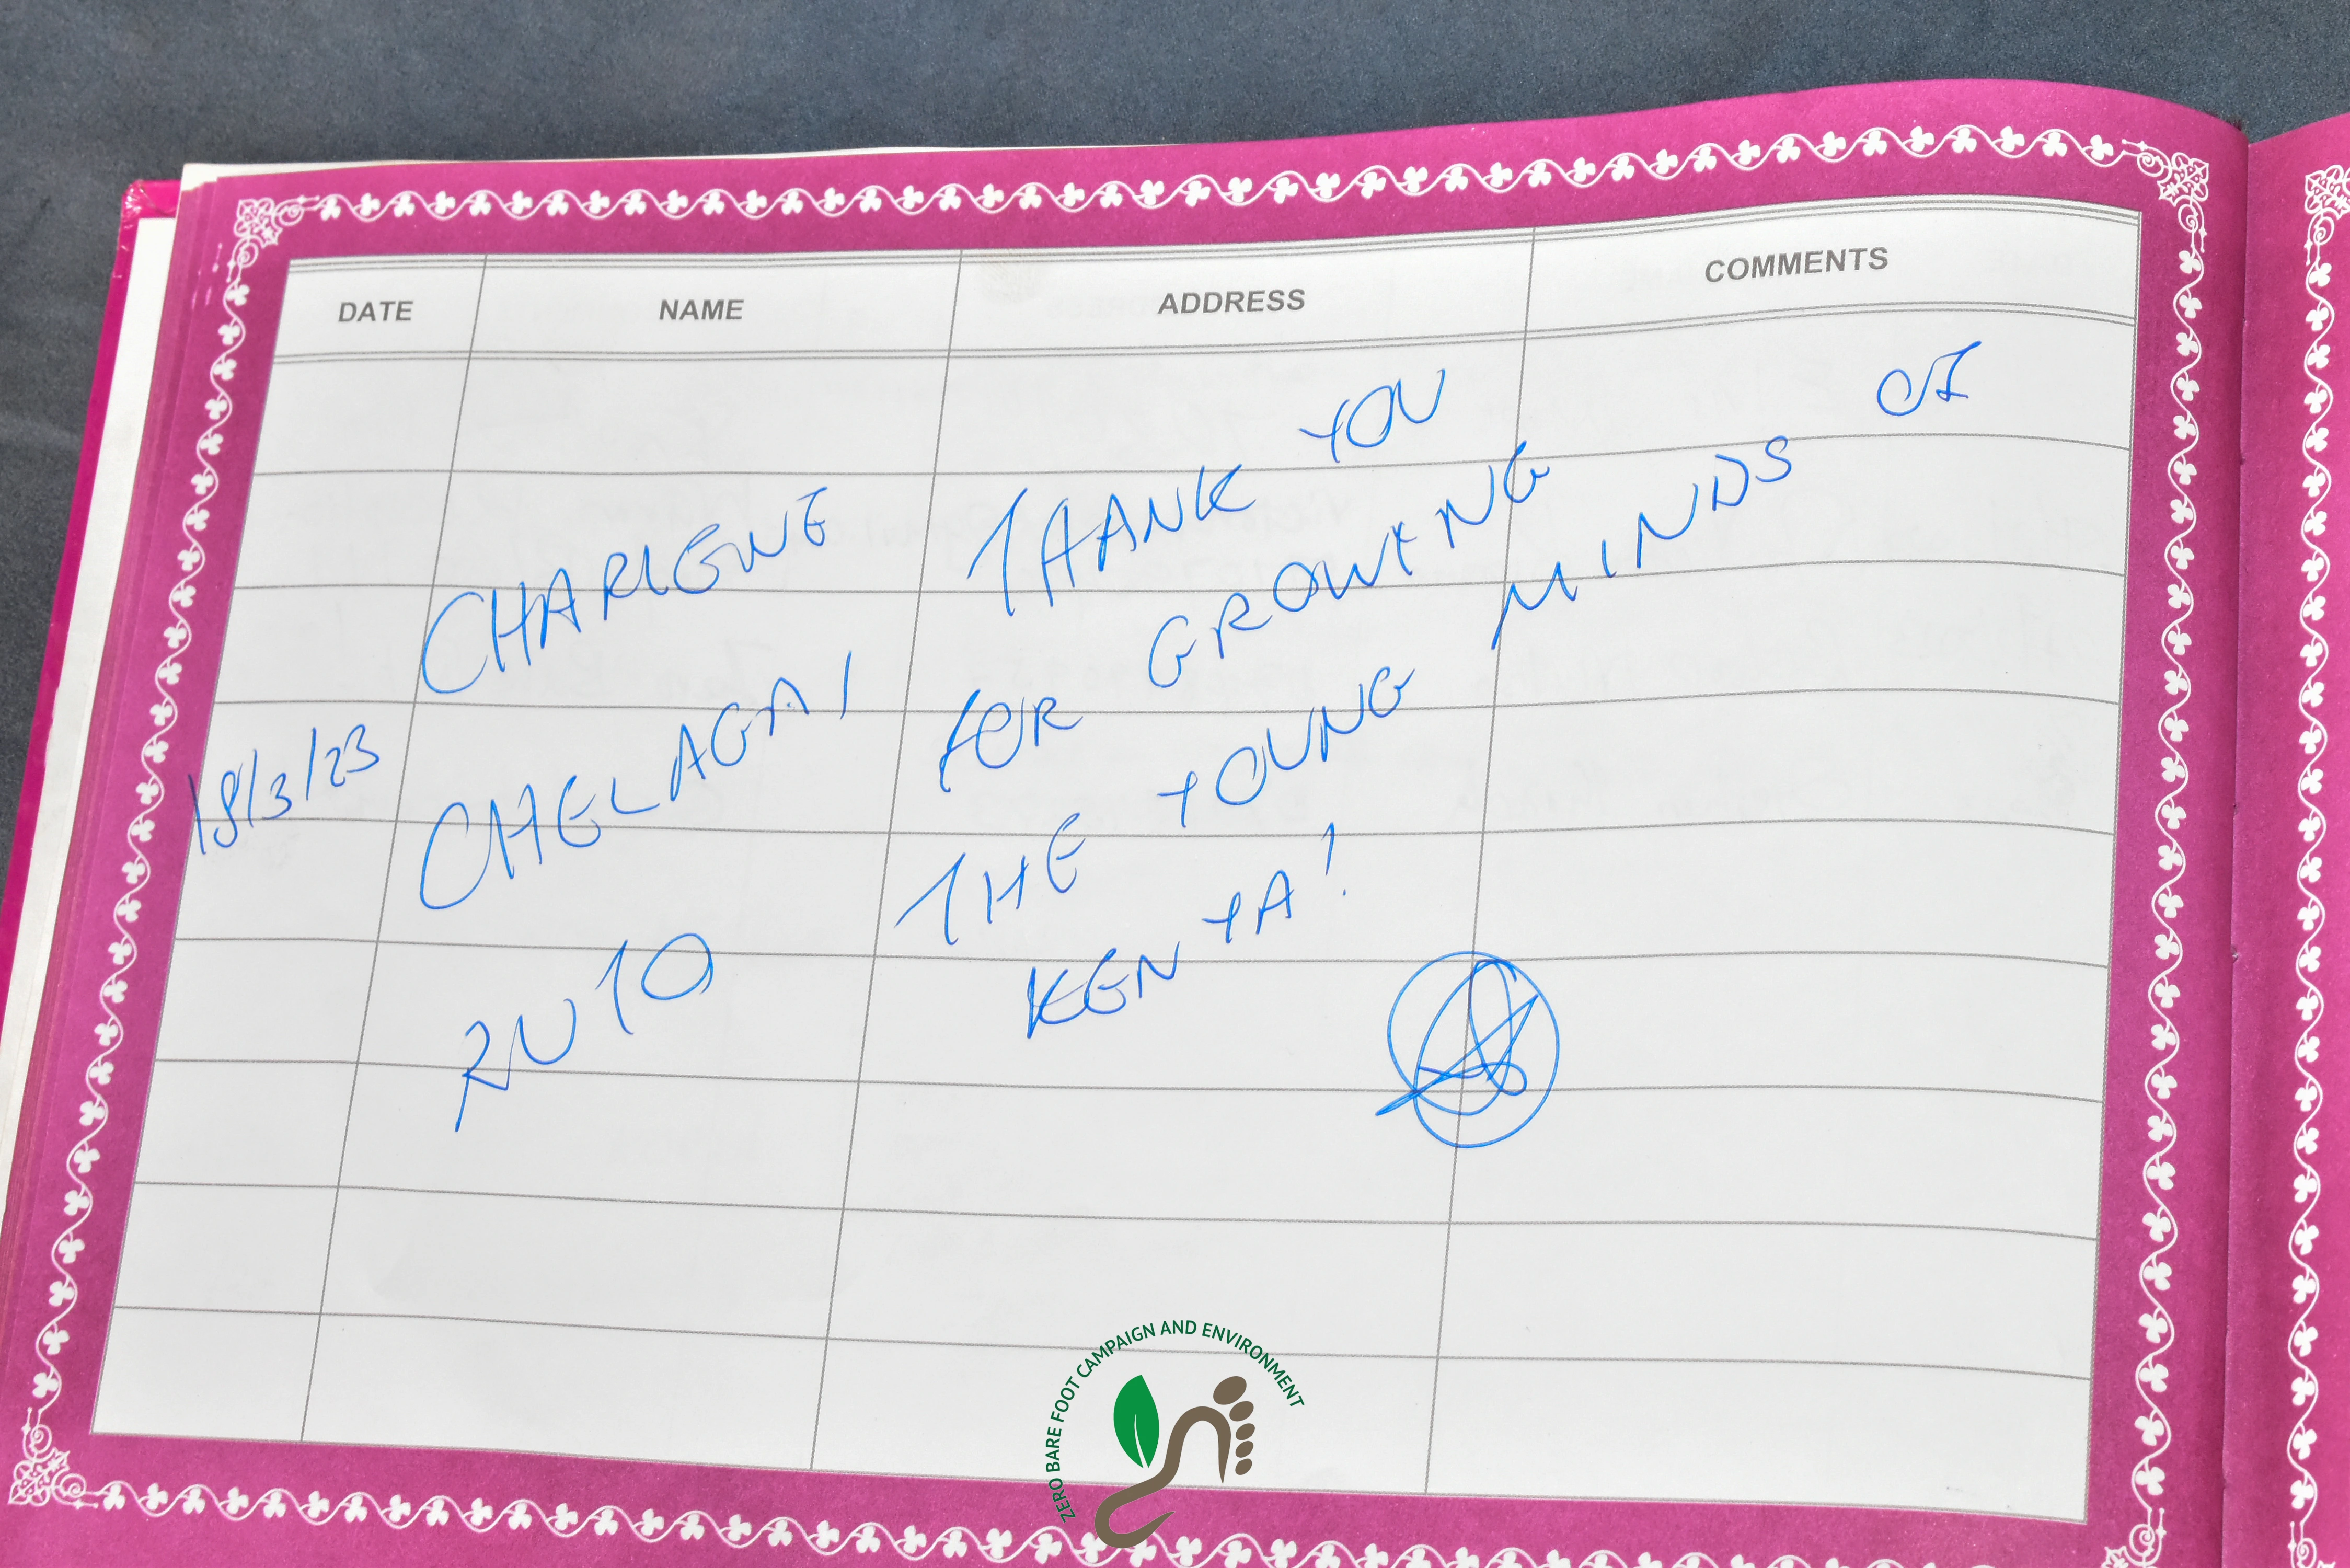 DATE NAME ADDRESS COMMENTS
18/3/23
CHARLENE
CHELAGAI
RUTO
THANK YOU
FOR GROWING
THE YOUNG MINDS OF
KENYA!
ZERO BARE FOOT CAMPAIGN AND ENVIRONMENT